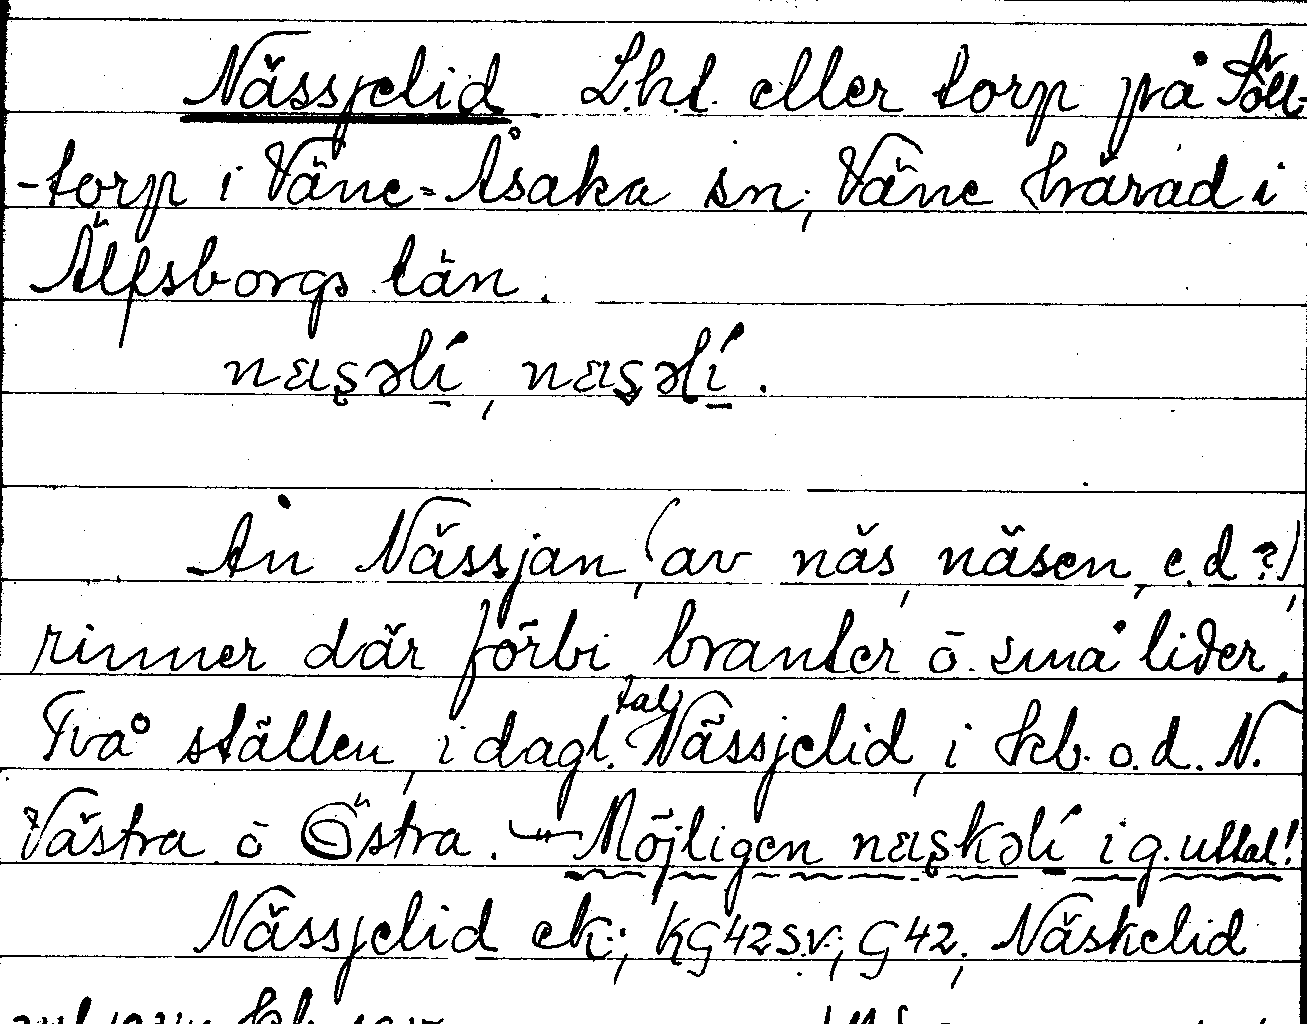 Nässjelid L.ht. eller torp på Höll-
-torp i Väne-Åsaka sn, Väne härad i
Älfsborgs län.
Ån Nässjan, (av näs, näsen, e.d?),
rinner där förbi branter ō. små lider.
Två ställen, i dagl. tal Nässjelid, i kb. o.d. N.
Västra ō Östra. – Möjligen i g. uttal!
Nässjelid ek.; KG42SV; G42, Näskelid